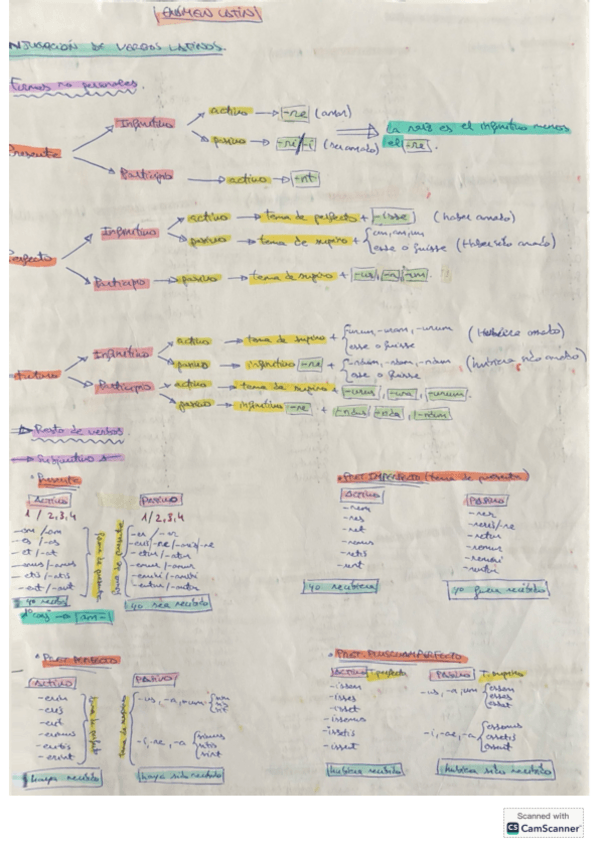 EXAMEN LATÍN
NJUGACIÓN DE VERBOS LATINOS.
Formas no personales.
Presente
Infinitivo
activo → -re (amar)
pasivo → -ri / -i (ser amado)
La raíz es el infinitivo menos
el -re.
Participio → activo → -nt
Infinitivo
activo → tema de perfecto + -isse (haber amado)
pasivo → tema de supino +
esse o fuisse (Haber sido amado)
Participio → pasivo → tema de supino + -us, -a, -um.
Infinitivo
activo → tema de supino + -urum, -uram, -urum (Hubiera amado)
esse o fuisse
pasivo → infinitivo -re + -ndum, -ndam, -ndum (hubiera sido amado)
esse o fuisse
Participio
activo → tema de supino + -urus, -ura, -urum.
pasivo → infinitivo -re + -ndus, -nda, -ndum
Resto de verbos
Subjuntivo
Presente
ACTIVO
1 / 2, 3, 4
-em /-am
-es /-as
-et /-at
-emus /-amus
-etis /-atis
-ent /-ant
tema de presente
yo reciba
PASIVO
1/2, 3, 4
-er /-ar
-etur /-atur
-emur /-amur
-emini /-amini
-entur /-antur
tema de presente
yo sea recibido
PRET. IMPERFECTO (tema de presente)
ACTIVO
-rem
-res
-ret
-remus
-retis
-rent
yo recibiera
PASIVO
-rer
-reris/-re
-retur
-remur
-remini
-rentur
yo fuera recibido
PRET. PERFECTO
ACTIVO
-erim
-eris
-erit
-erimus
-eritis
-erint
tema de perfecto
haya recibido
PASIVO
tema de supino
-us, -a, -um
sim
sis
sit
-i, -ae, -a
simus
sitis
sint
haya sido recibido
PRET. PLUSCUAMPERFECTO
ACTIVO T. perfecto
-issem
-isses
-isset
-issemus
-issetis
-issent
hubiera recibido
PASIVO T. supino
-us, -a, um
essem
esses
esset
-i, -ae, -a
essemus
essetis
essent
hubiera sido recibido
Scanned with
CS CamScanner